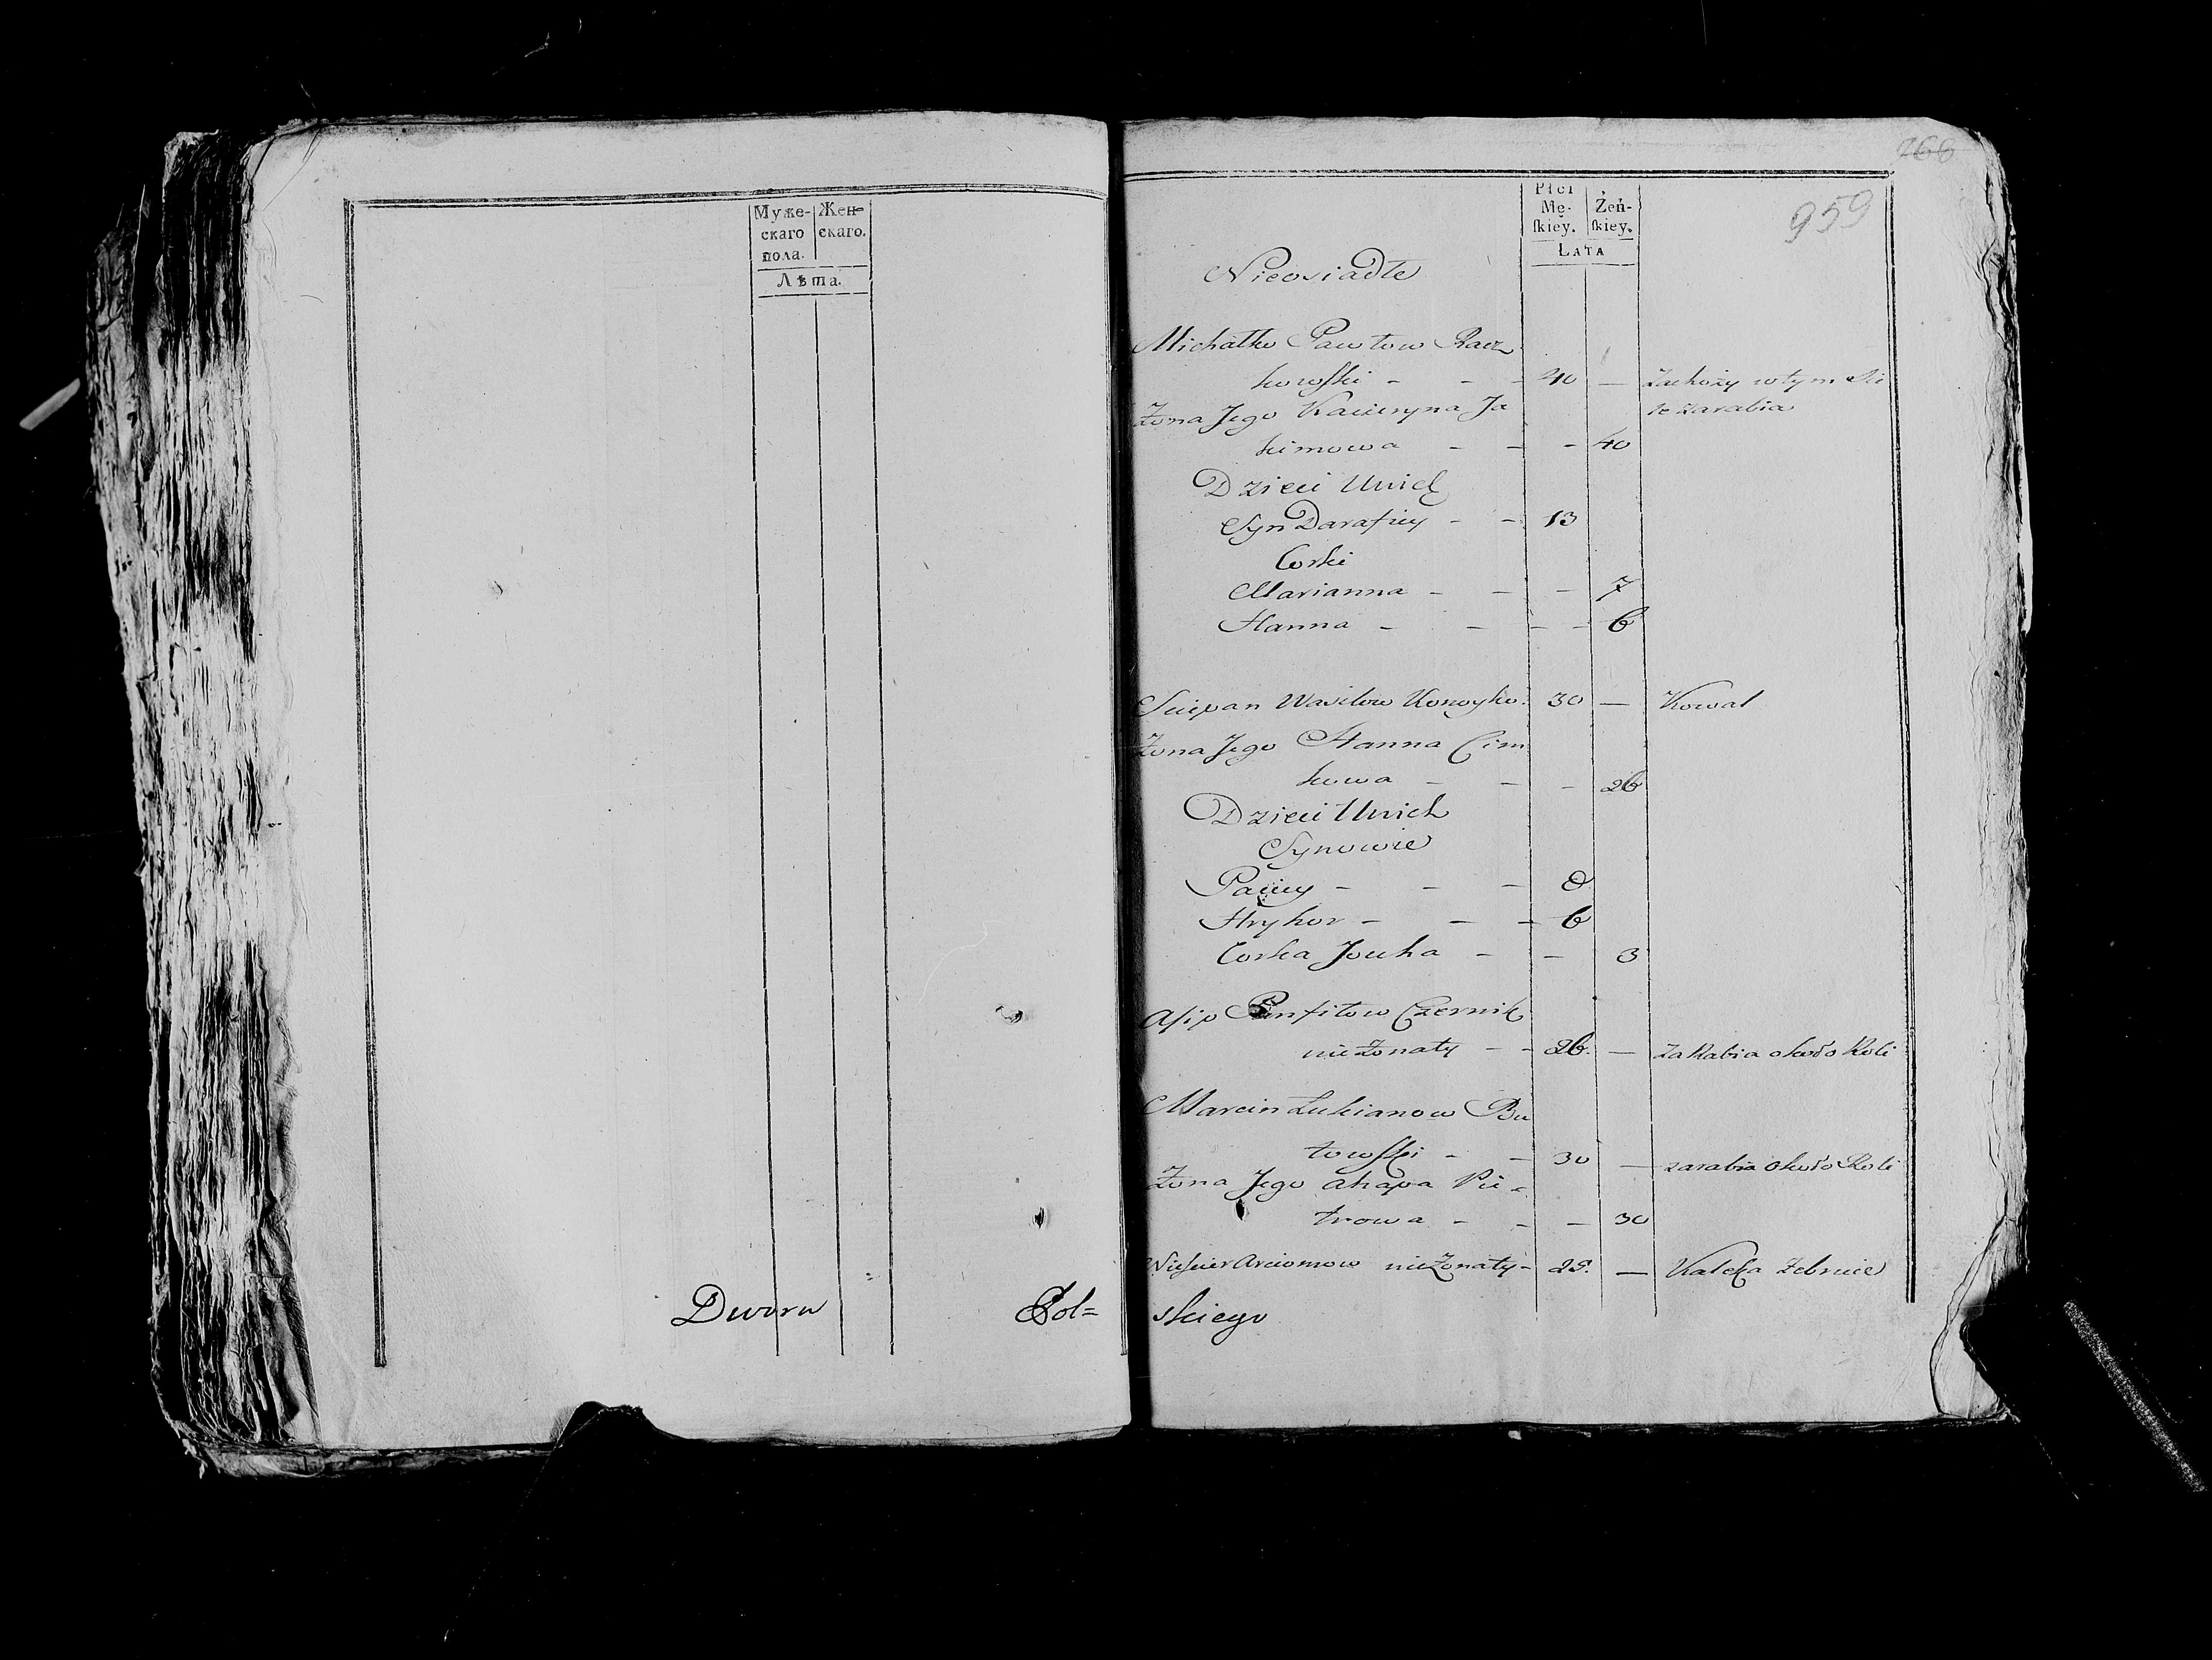 Муже- Жен-
скаго скаго.
пола.
Лѣта.
Dworu Pol=
266
959
Płci
Mę- Żeń-
ſkiey. ſkiey.
Lata
Nieosiadłe
Michałko Pawłow Racz
kowſki - - - 40 — Zachoży w tym Sie
le zarabia
Żona Jego Kacieryna Ja
kimowa - - - 40
Dzieci Unich
Syn Darafiey - - 13
Corki
Marianna - - - 7
Hanna - - - - 6
Sciepan Wasilow Konoyko. 30 — Kowal
Żona Jego Hanna Cim
kowa - - - 26
Dzieci Unich
Synowie
- - - 8
Hryhor - - - 6
Corka Jouha - - 3
Asip Panfiłow Czernik
nieżonaty - - 26. — Zarabia około Roli
Marcin Łukianow Bu
towſki - - 30 — zarabia około Roli
Żona Jego Ahapa Pie-
trowa - - - 30
Arciomow nieżonaty - 25. — Kaleka żebrze
skiego